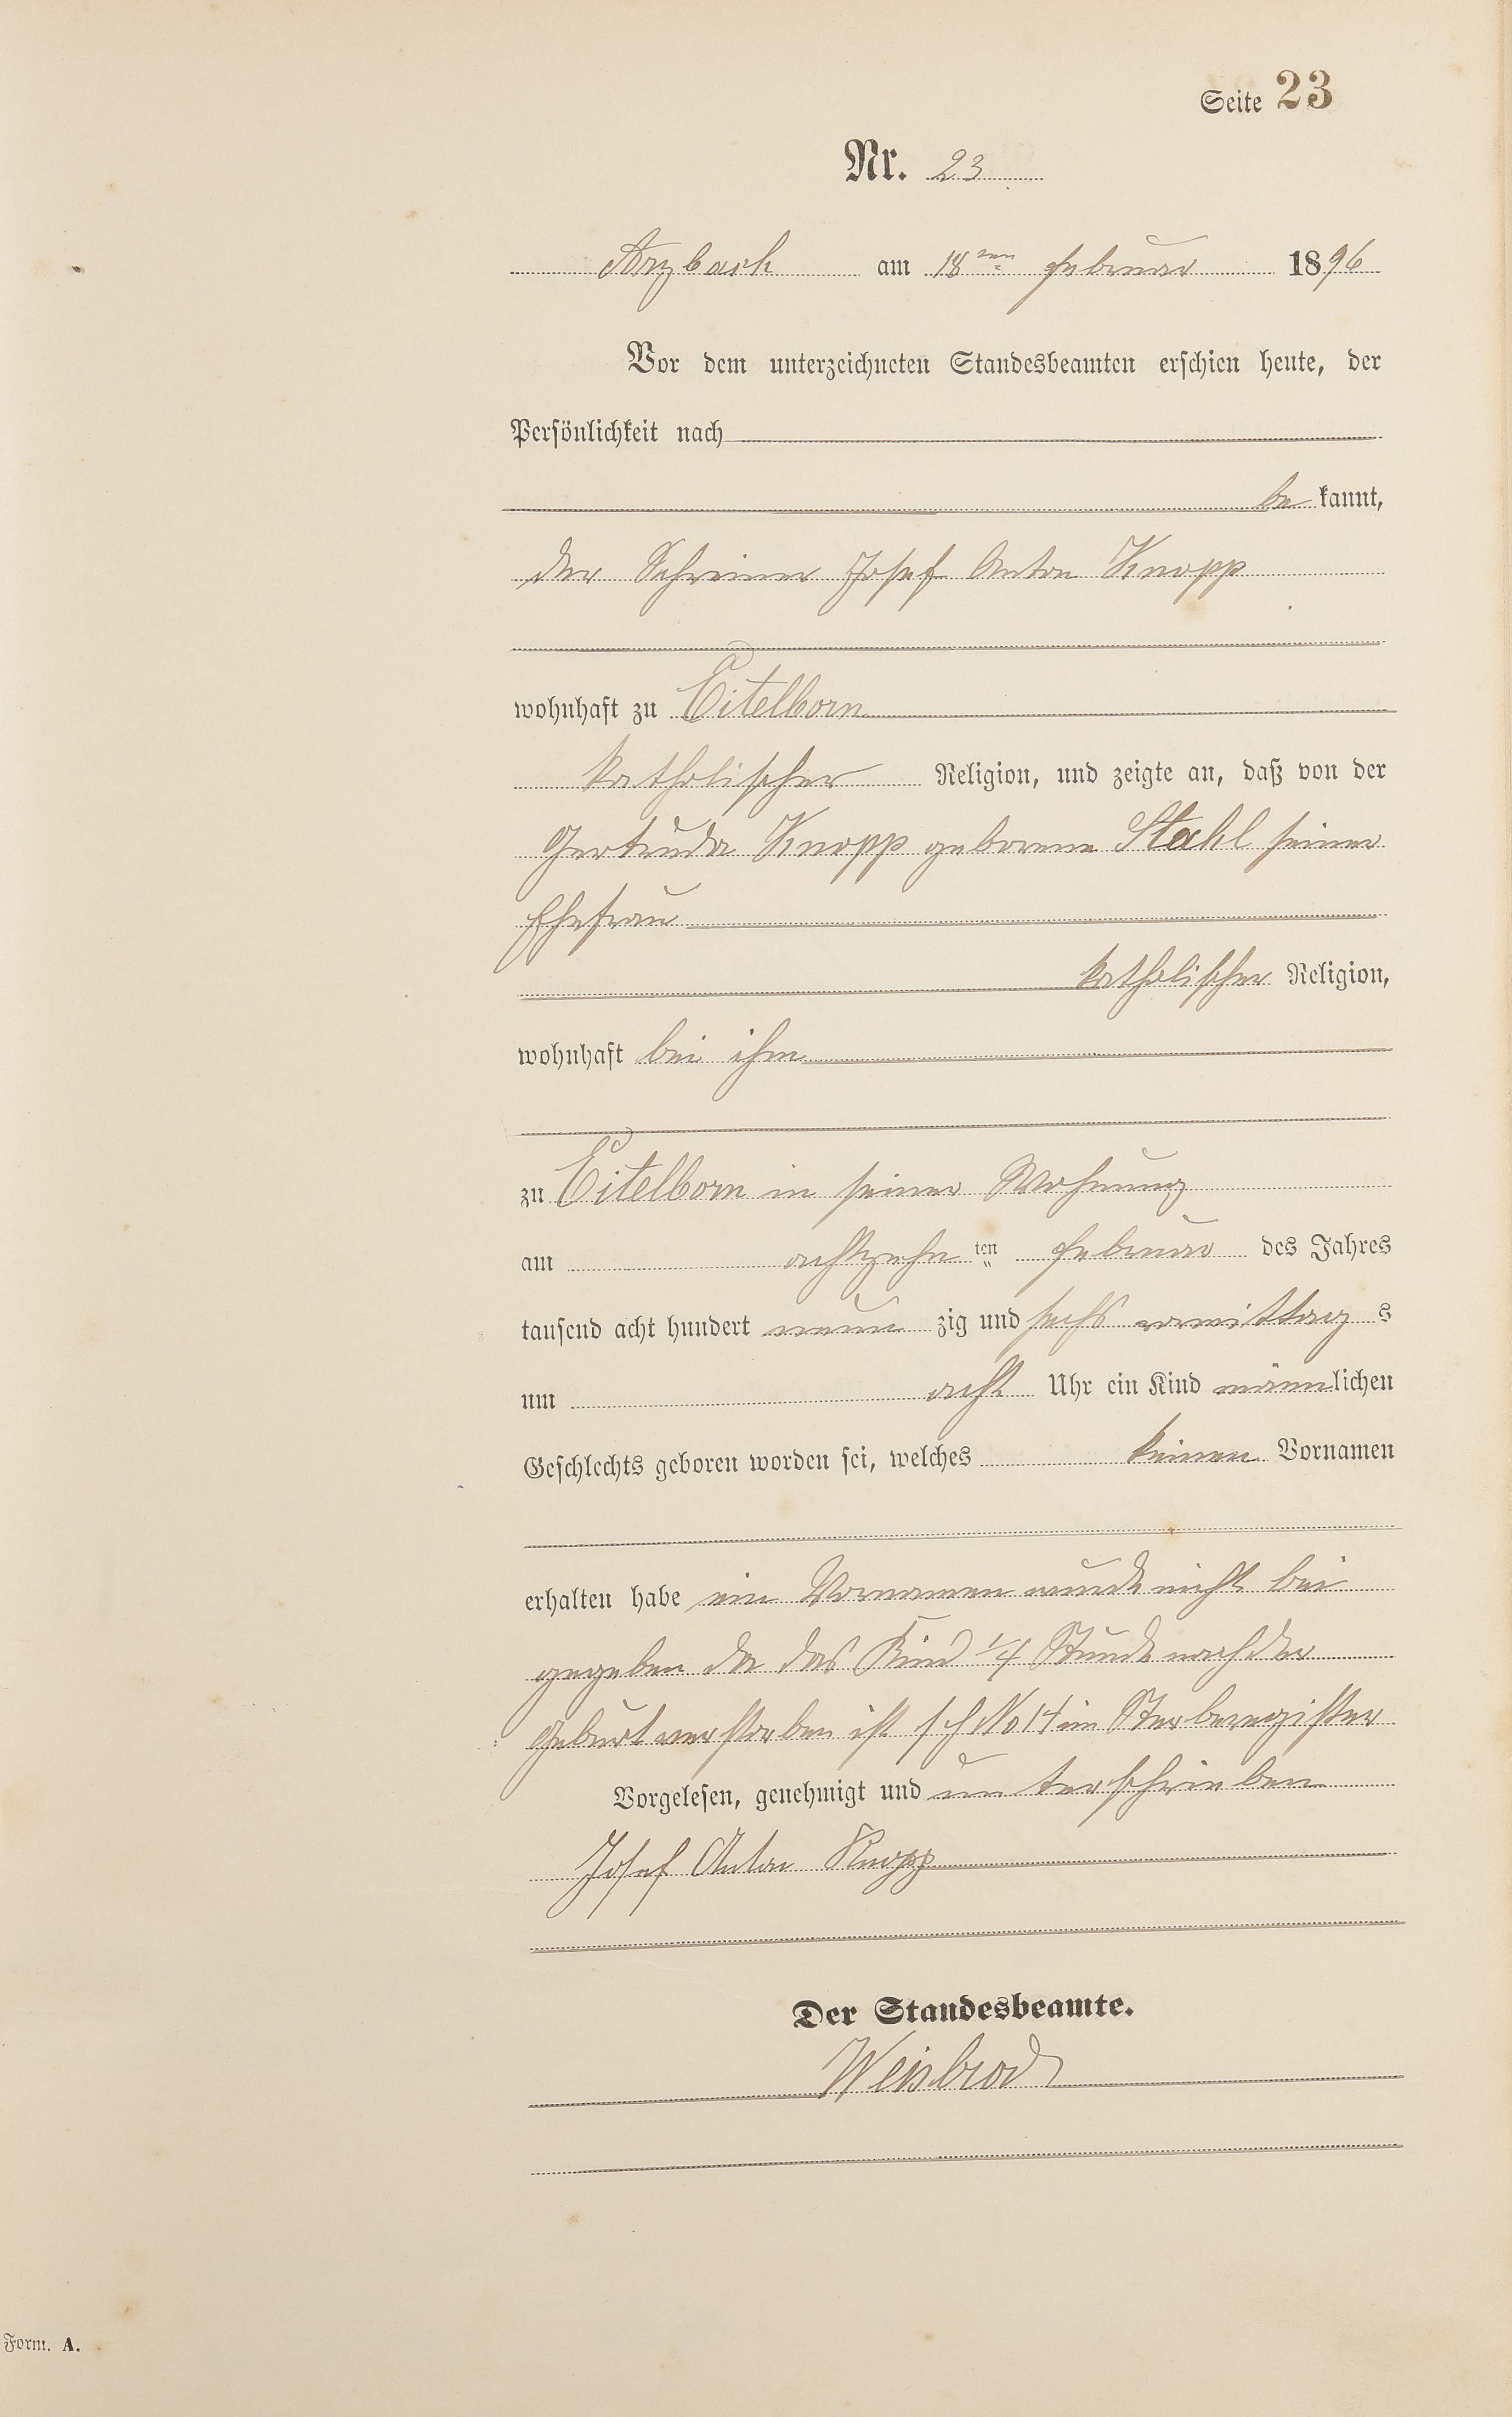 Seite 23
Nr. 23
Arzbach am 18ten Februar 1896
Vor dem unterzeichneten Standesbeamten erschien heute, der
Persönlichkeit nach
be kannt,
der Schreiner Josef Anton Knopp
wohnhaft zu Eitelborn
katholischer Religion, und zeigte an, daß von der
Gertruda Knopp geborene Stahl seiner
Ehefrau
katholischer Religion,
wohnhaft bei ihm
zu Eitelborn in seiner Wohnung
am achtzehn ten Februar des Jahres
tausend acht hundert neun zig und sechs vormittag s
um acht Uhr ein Kind männlichen
Geschlechts geboren worden sei, welches keinen Vornamen
erhalten habe ein Vornamen wurde nicht bei
gegeben da das Kind 1/4 Stunde nach der
Geburt verstorben ist No 14 im Sterberegister
Vorgelesen, genehmigt und unterschrieben
Josef Anton Knopp
Der Standesbeamte.
Weisbrod
Form. A.